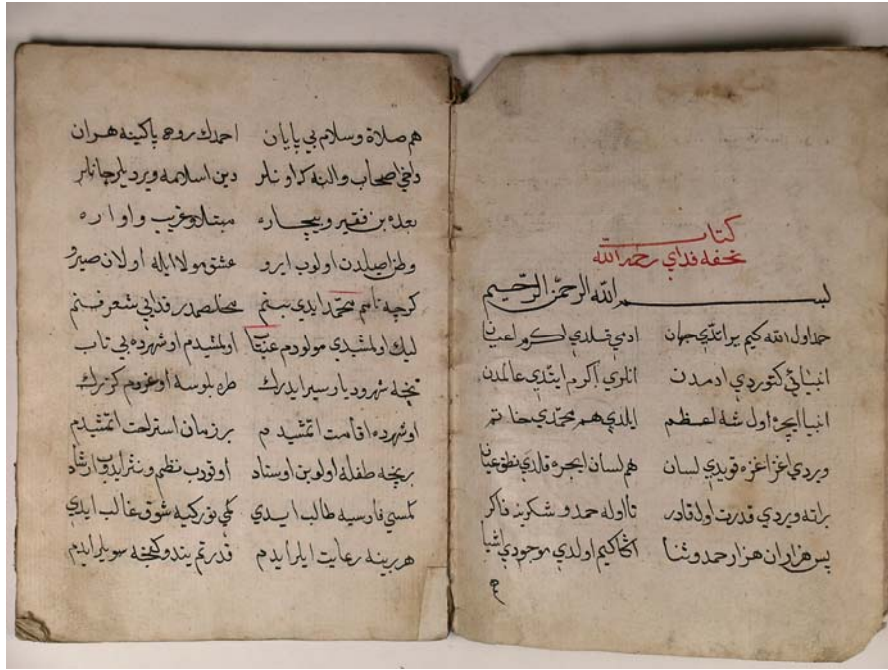 كتاب
تحفه فداي رحمه الله
بسم الله الرحمن الرحيم
حمد اول الله كيم يراتدي جهان ادمي قلدي اكرم اعيان
انبيائي كتوردي ادمدن انلري اكرم ايتدي عالمدن
انبيا ايچره اول شه اعظم ايلدي هم محمدي خاتم
ويردي اغزاغزه قويدي لسان هم لسان ايچره قلدي نطق عيان
ويردي قدرت اول قادر تا اوله حمد و شكرينه ذاكر
پس هزاران هزار حمد و ثنا اكا كيم اولدي موجود اشيا
هم صلاة و سلام بي پايان احمدك روح پاكينه هر ان
دخي اصحاب و النه كه اونلر دين اسلامه ويرديلر جانلر
بعده بن فقير و بيچاره مبتلا و غريب و اواره
وطن اصليدن اولوب ايرو عشق مولا ايله اولان
كرچه نامم محمد ايدي بنم مخلصمدر فدايي شعر فنم
ليك اولمشيدي مولودم عنتاب اولمشيدم او شهرده بي تاب
نيجه شهر و ديار سير ايدرك طره بلوسه اوغردم كزرك
او شهرده اقامت اتمشيدم بر زمان استراحت اتمشيدم
بر نيجه طفله اولوبن اوستاد اوقودب نظم و نثر ايدوب ارشاد
كمسي فارسيه طالب ايدي كمي توركيه شوق غالب ايدي
هر برينه رعايت ايلر ايدم قدرتم يتدوكنجه سويلر ايدم